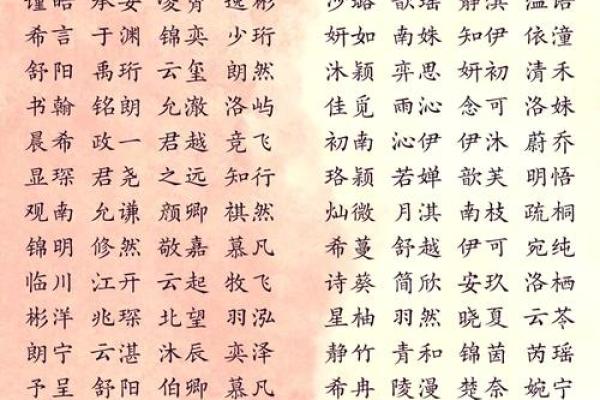 谨皓 承安 凌霄 逸彬 沙璐 歆瑶 静淇 温语
希言 于渊 锦奕 少珩 妍如 南姝 知伊 依潼
舒阳 禹珩 云玺 朗然 沐颖 弈思 妍初 清禾
书翰 铭朗 允澈 洛屿 佳觅 雨沁 念可 洛妹
晨希 政一 君越 竞飞 初南 沁伊 伊沐 蔚乔
显琛 君尧 之远 知行 珞颖 若婵 歆芙 明悟
观南 允谦 颜卿 祺然 灿微 月淇 南枝 疏桐
锦明 修然 敬嘉 慕凡 希蔓 舒越 伊可 宛纯
临川 江开 云起 牧飞 诗葵 简欣 安玖 洛栖
彬洋 兆琛 北望 羽泓 星柚 羽然 晓夏 云苓
朗宁 云湛 沐辰 奕泽 静竹 青和 锦茵 芮瑶
予呈 舒阳 伯卿 慕凡 希冉 陵漫 楚奈 婉宁